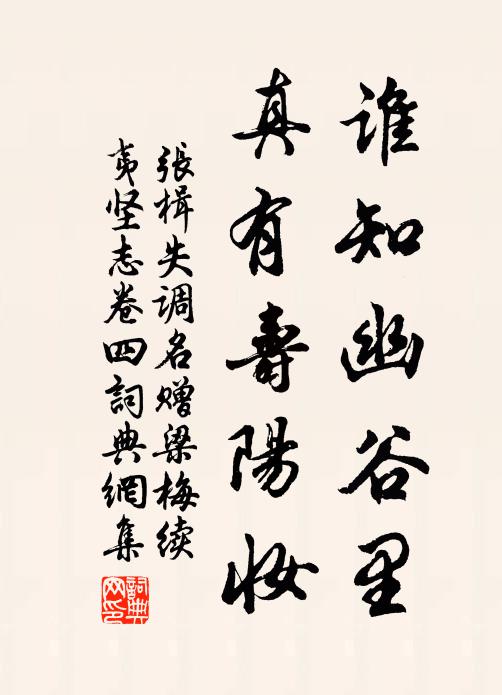 誰知幽谷里
真有壽陽妝
張楫失调名赠梁梅续
夷坚志卷四詞典網集
詞典网印